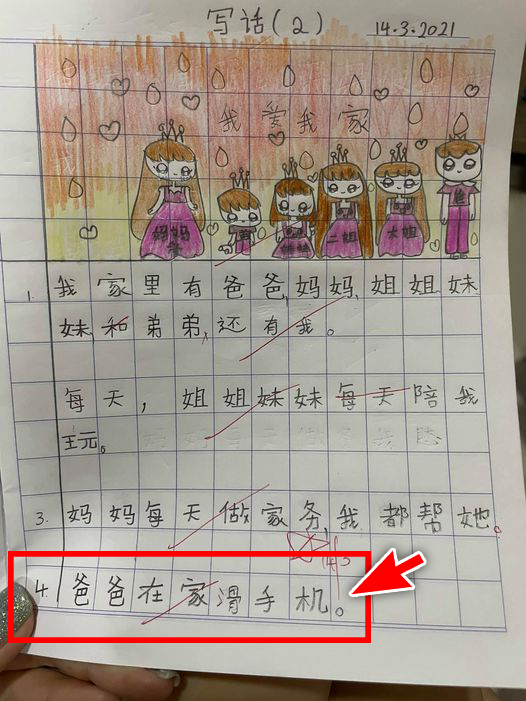 写话(2) 14.3.2021
我爱我家
妈妈 二姐 大姐 爸
1. 我家里有爸爸,妈妈,姐姐妹
妹,和弟弟,还有我。
每天,姐姐妹妹每天陪我
玩。
3. 妈妈每天做家务,我都帮她。
14/3
4. 爸爸在家滑手机。